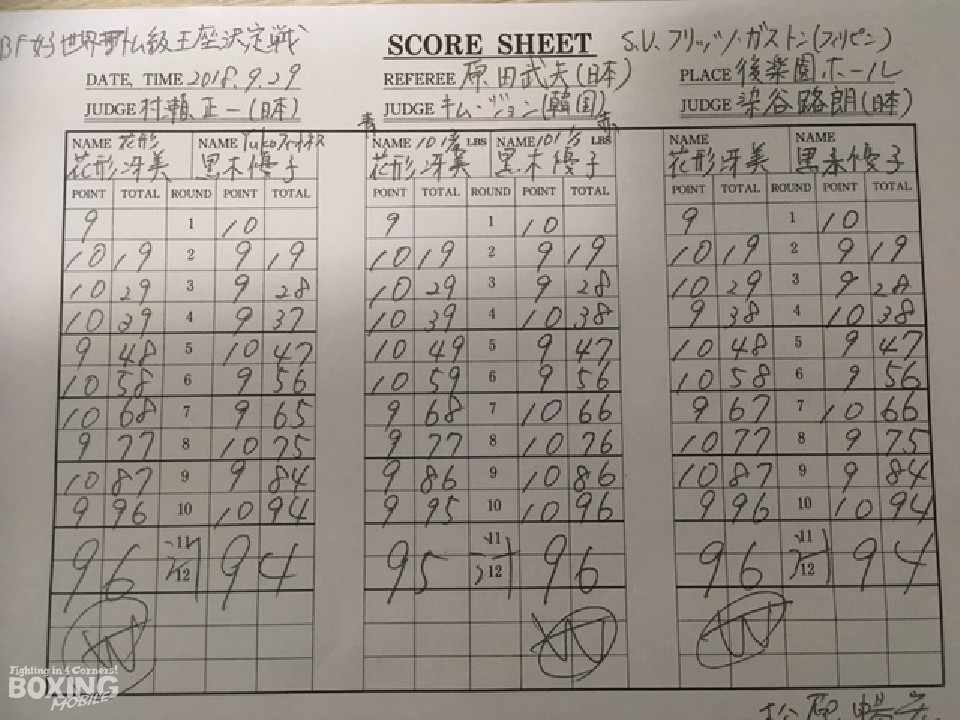 世界 級王座決定戦 SCORE SHEET S.V. フリッツ・ガストン(フィリピン)
DATE, TIME 2018.9.29 REFEREE 原田武夫(日本) PLACE 後楽園ホール
JUDGE 村瀬正一(日本) JUDGE キム・ジョン(韓国) JUDGE 染谷路朗(日本)
青 赤
NAME 花形 NAME Yuko NAME 101 LBS NAME 101 LBS NAME NAME
花形冴美 黒木優子 花形冴美 黒木優子 花形冴美 黒木優子
POINT TOTAL ROUND POINT TOTAL POINT TOTAL ROUND POINT TOTAL POINT TOTAL ROUND POINT TOTAL
9 1 10 9 1 10 9 1 10
10 19 2 9 19 10 19 2 9 19 10 19 2 9 19
10 29 3 9 28 10 29 3 9 28 10 29 3 9 28
10 39 4 9 37 10 39 4 10 38 9 38 4 10 38
9 48 5 10 47 10 49 5 9 47 10 48 5 9 47
10 58 6 9 56 10 59 6 9 56 10 58 6 9 56
10 68 7 9 65 9 68 7 10 66 9 67 7 10 66
9 77 8 10 75 9 77 8 10 76 10 77 8 9 75
10 87 9 9 84 9 86 9 10 86 10 87 9 9 84
9 96 10 10 94 9 95 10 10 96 9 96 10 10 94
96 11 94 95 11 96 96 11 94
12 12 12
W W W
Fighting in 4 Corners!
BOXING
MOBILE